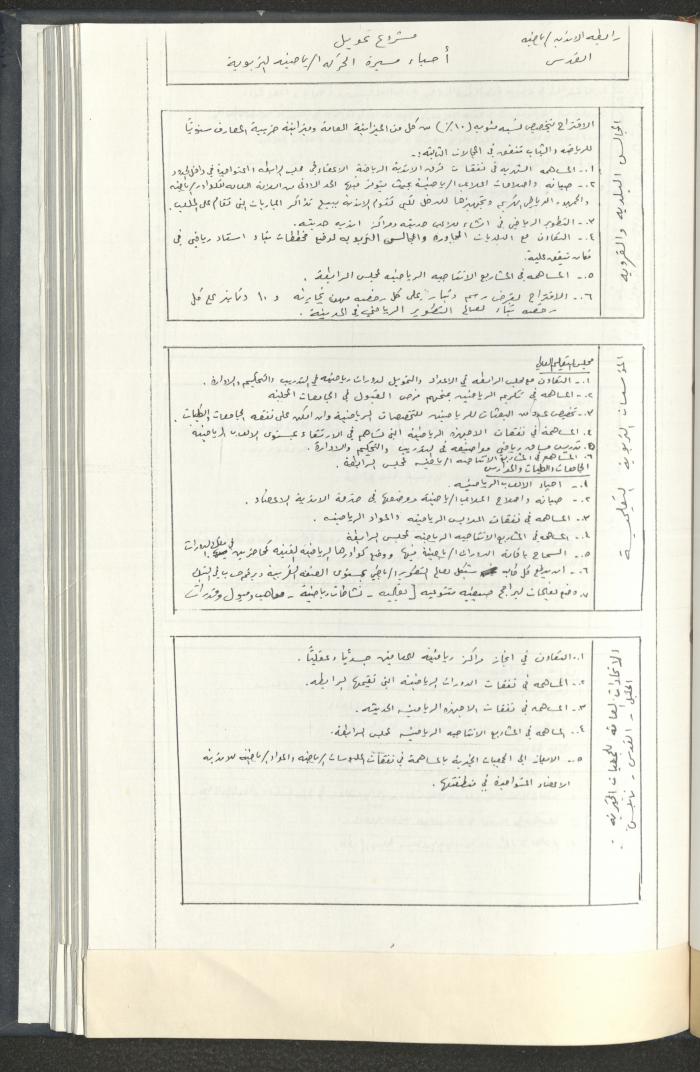 رابطة الاندية الرياضية
القدس
مشروع تمويل
أحياء مسيرة الحركة الرياضية التربوية
المجالس البلدية والقروية
الاقتراح بتخصيص نسبة مئوية (١٠٪) من كل من الميزانية العامة وميزانية ضريبة المعارف سنويًا
للرياضة والشباب تنفق في المجالات التالية:-
١.- المساهمة الشهرية في نفقات فرق الاندية الرياضية الاعضاء في مجلس الرابطة والمتواجدة في داخل الحدود
٢.- صيانة واصلاحات الملاعب الرياضية بحيث يتوفر فيها الحد الادنى من السلامة العامة للكوادر الرياضية
والجمهور الرياضي الكريم وتجهيزها للدخل لكي تقوم الاندية ببيع تذاكر المباريات التي تقام على الملعب.
٣.- التطوير الرياضي في انشاء ملاعب حديثة ومراكز اندية حديثة.
٤.- التعاون مع البلديات المجاورة والمجالس القروية لوضع مخططات بناء استاد رياضي في
مكان متفق عليه.
٥.- المساهمة في المشاريع الانتاجية الرياضية لمجلس الرابطة.
٦.- الاقتراح بفرض رسم دينار على كل رخصة مهن تجارية و ١٠ دنانير على كل
رخصة بناء لصالح التطوير الرياضي في المدينة.
المؤسسات التربوية التعليمية
مجلس التعليم العالي
١.- التعاون مع مجلس الرابطة في الاعداد والتمويل لدورات رياضية في التدريب والتحكيم والادارة.
٢.- المساهمة في تكريم الرياضيين بمنحهم فرص القبول في الجامعات المحلية
٣.- تخصيص عدد من البعثات للرياضيين للتخصصات الرياضية وان امكن على نفقة الجامعات والكليات.
٤.- المساهمة في نفقات الاجهزة الرياضية التي تساهم في الارتقاء بمستوى الالعاب الرياضية
٥. تدريس مساق رياضي مواضيعه في التدريب والتحكيم والادارة.
٦.- المساهمة في المشاريع الانتاجية الرياضية لمجلس الرابطة.
الجامعات والكليات والمدارس
١.- احياء الالعاب الرياضية.
٢.- صيانة واصلاح الملاعب الرياضية ووضعها في خدمة الاندية الاعضاء.
٣.- المساهمة في نفقات الملابس الرياضية والمواد الرياضية.
٤.- المساهمة في المشاريع الانتاجية الرياضية لمجلس الرابطة
٥.- السماح باقامة الدورات الرياضية فيها ووضع كوادرها الرياضية الفنية كمحاضرين في هذه الدورات
٦.- ان يدفع كل طالب شيكل لصالح التطوير الرياضي بمستوى الضفة الغربية
٧. وضع تعليمات لبرامج صيفية متنوعة [تعليمية - نشاطات رياضية - مواهب وميول وقدرات
الاتحادات العامة للجمعيات الخيرية
الخليل - القدس - نابلس.
١.- التعاون في انجاز مراكز رياضية للمعاقين جسديًا وعقليًا.
٢.- المساهمة في نفقات الدورات الرياضية التي تقيمها الرابطة.
٣.- المساهمة في نفقات الاجهزة الرياضية الحديثة.
٤.- المساهمة في المشاريع الانتاجية الرياضية لمجلس الرابطة.
٥.- الايعاز الى الجمعيات الخيرية بالمساهمة في نفقات الملبوسات الرياضية والمواد الرياضية للاندية
الاعضاء المتواجدة في منطقتها.